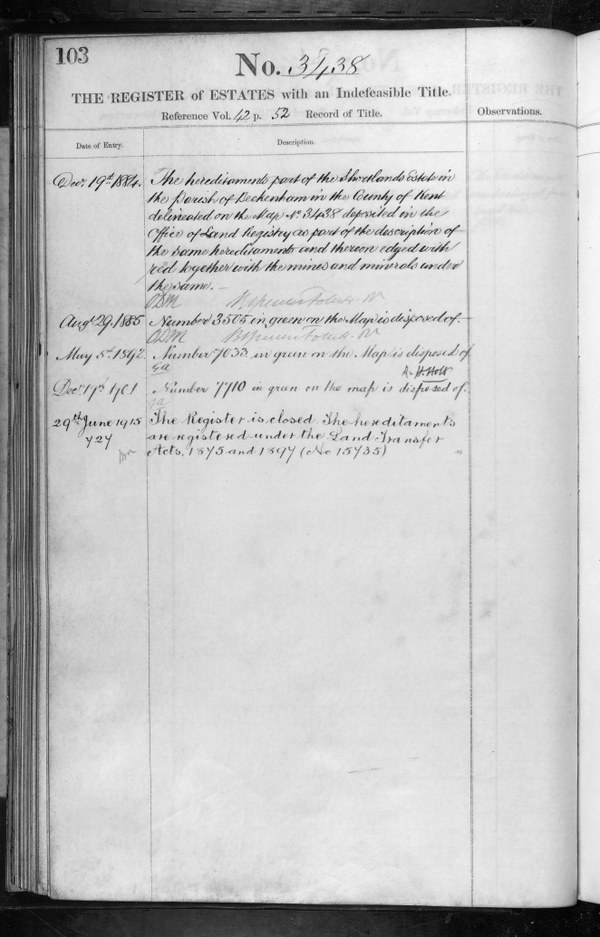 103
No. 3438
THE REGISTER of ESTATES with an Indefeasible Title.
Reference Vol. 42 p. 52 Record of Title.
Observations.
Date of Entry.
Description.
Decr. 19th 1884.
The hereditaments part of the Shortlands Estate in
the Parish of Beckenham in the County of Kent
delineated on the Map No. 3438 deposited in the
Office of Land Registry as part of the description of
the same hereditaments and thereon edged with
red together with the mines and minerals under
the same.
Augt. 29. 1885
Number 3505 in green on the Map is disposed of.
May 5th 1892
Number 7033 in green on the Map is disposed of
A. Holt
Decr. 17th 1901
Number 7710 in green on the map is disposed of.
29th June 1915
The Register is closed. The hereditaments
727
are registered under the Land Transfer
Acts, 1875 and 1897 (No 15735)